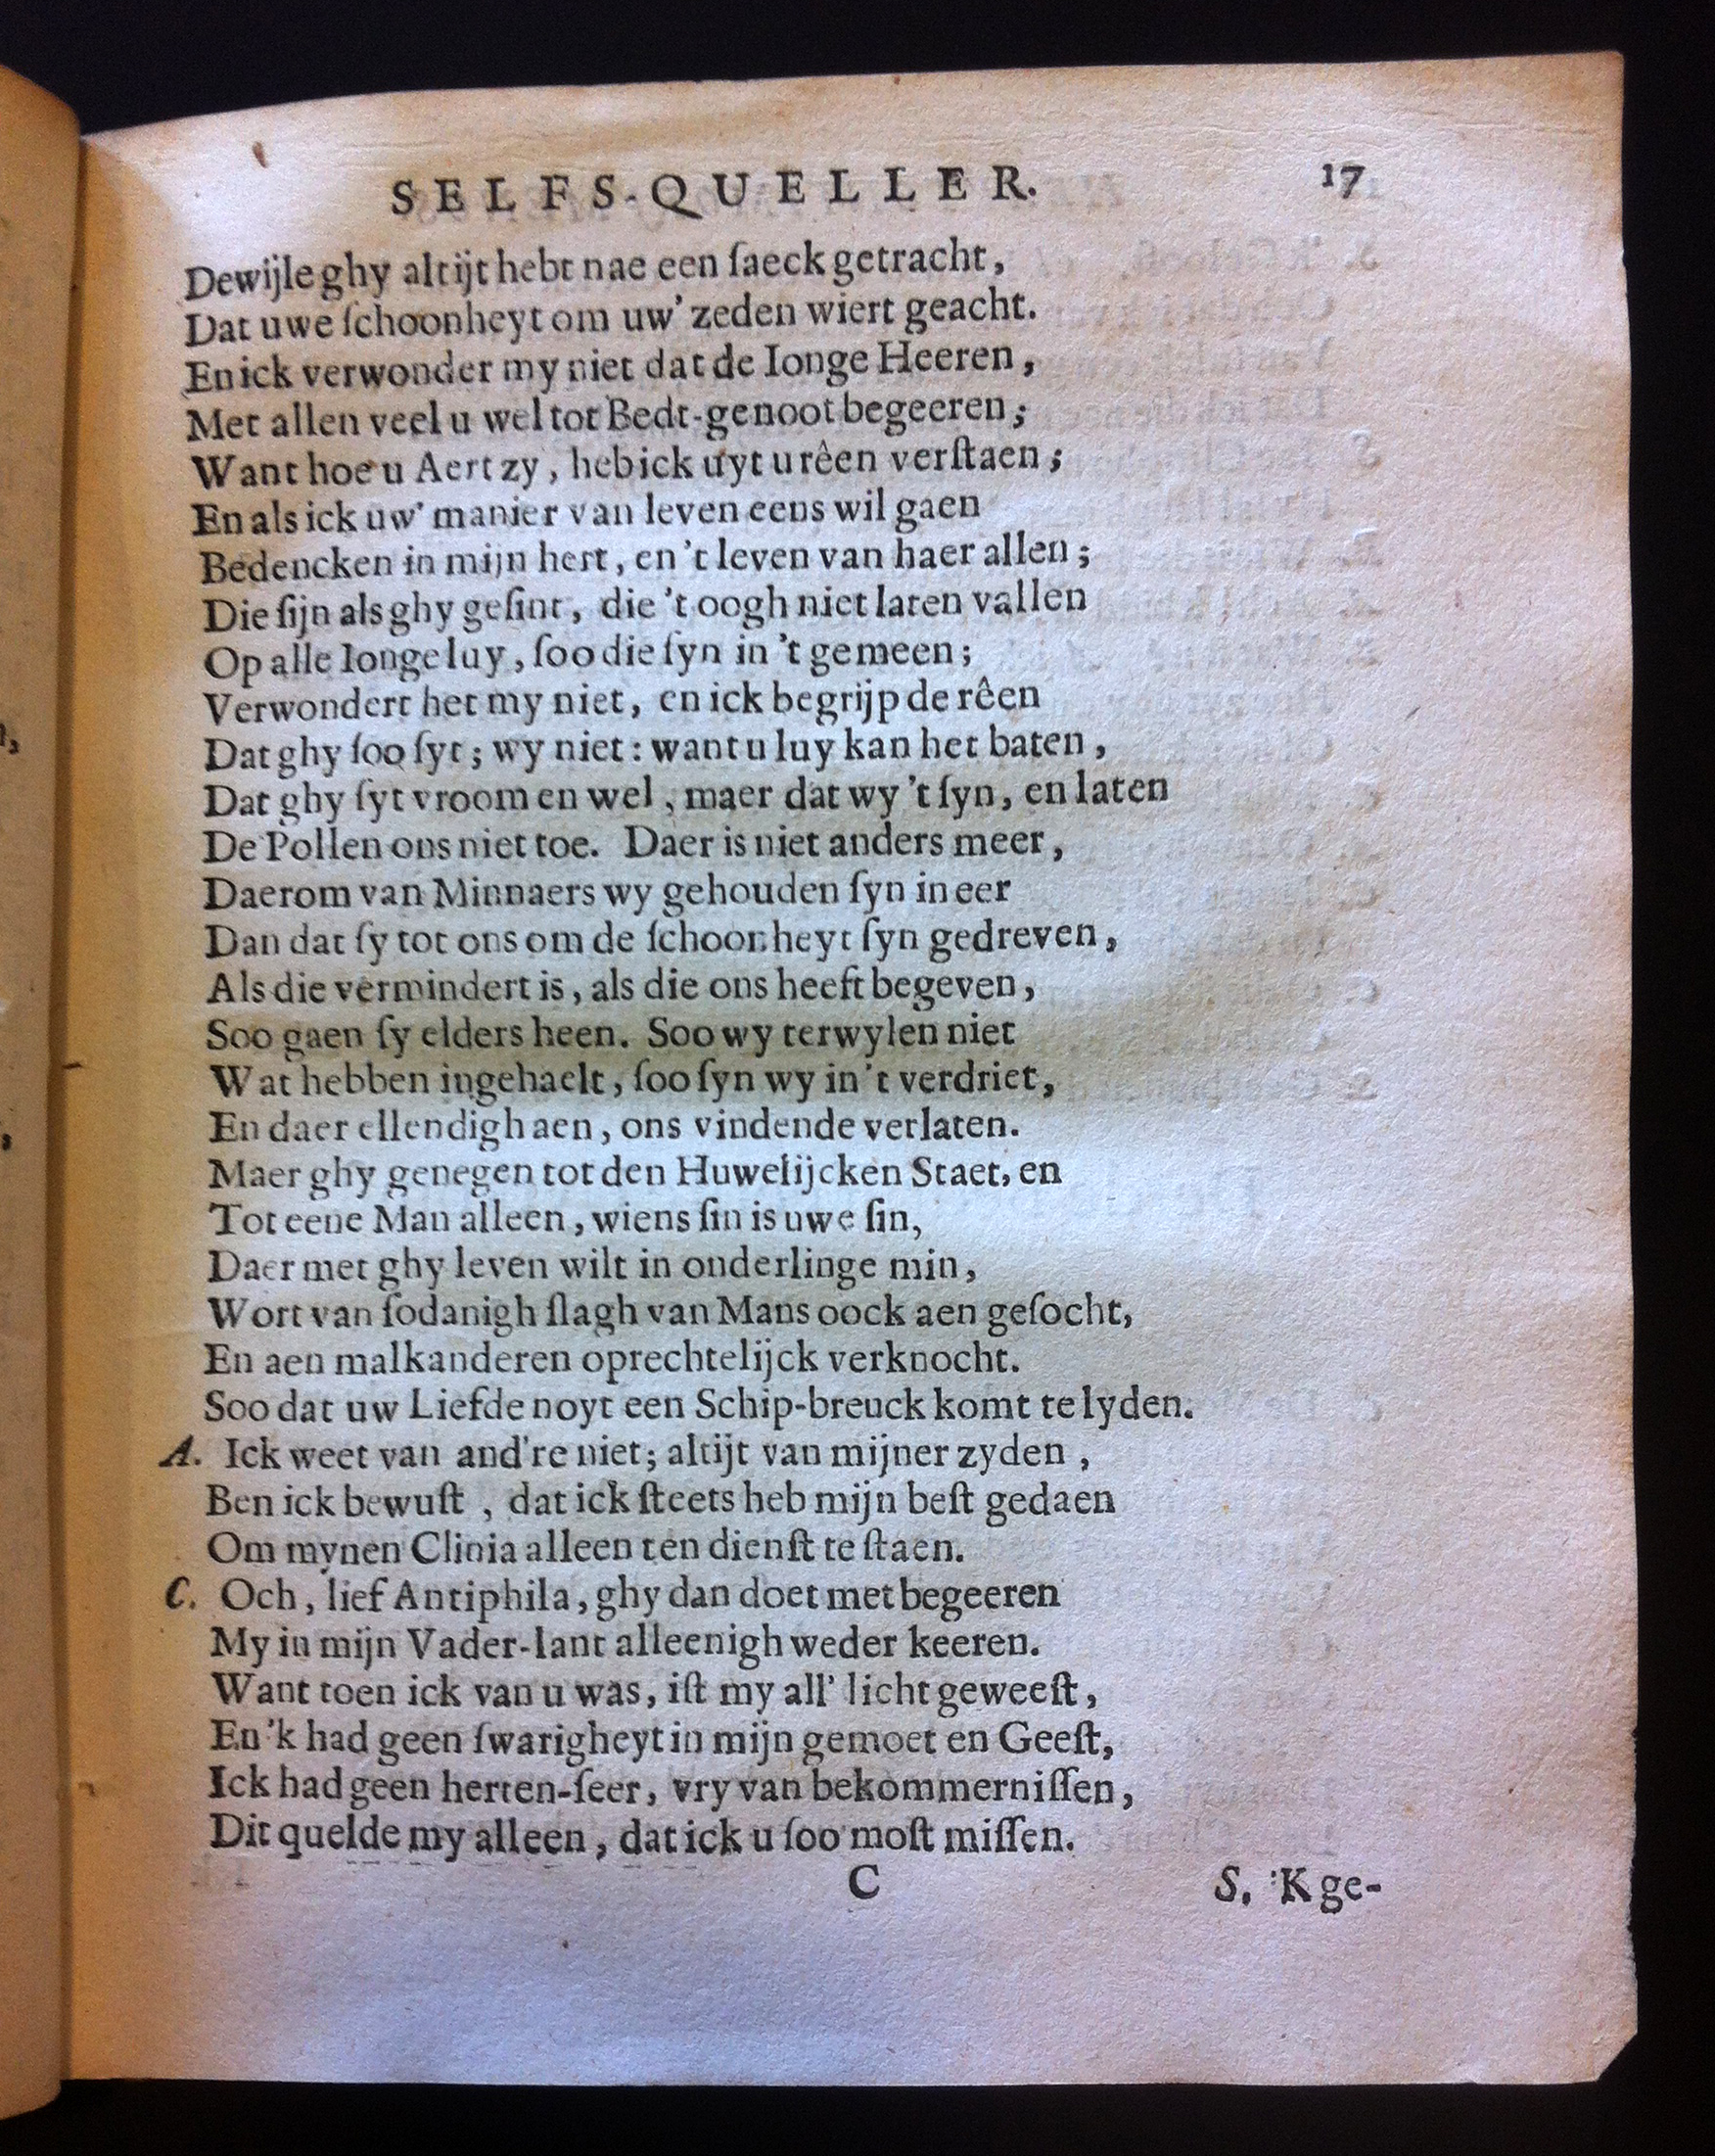 SELFS-QUELLER. 17
Dewijle ghy altijt hebt nae een ſaeck getracht,
Dat uwe ſchoonheyt om uw' zeden wiert geacht.
En ick verwonder my niet dat de Ionge Heeren,
Met allen veel u wel tot Bedt-genoot begeeren;
Want hoe u Aert zy, heb ick uyt u rêen verſtaen;
En als ick uw' manier van leven eens wil gaen
Bedencken in mijn hert, en 't leven van haer allen;
Die ſijn als ghy geſint, die 't oogh niet laten vallen
Op alle Ionge luy, ſoo die ſyn in 't gemeen;
Verwondert het my niet, en ick begrijp de rêen
Dat ghy ſoo ſyt; wy niet: want u luy kan het baten,
Dat ghy ſyt vroom en wel, maer dat wy 't ſyn, en laten
De Pollen ons niet toe. Daer is niet anders meer,
Daerom van Minnaers wy gehouden ſyn in eer
Dan dat ſy tot ons om de ſchoonheyt ſyn gedreven,
Als die vermindert is, als die ons heeft begeven,
Soo gaen ſy elders heen. Soo wy terwylen niet
Wat hebben ingehaelt, ſoo ſyn wy in 't verdriet,
En daer ellendigh aen, ons vindende verlaten.
Maer ghy genegen tot den Huwelijcken Staet, en
Tot eene Man alleen, wiens ſin is uwe ſin,
Daer met ghy leven wilt in onderlinge min,
Wort van ſodanigh ſlagh van Mans oock aen geſocht,
En aen malkanderen oprechtelijck verknocht.
Soo dat uw Liefde noyt een Schip-breuck komt te lyden.
A. Ick weet van and're niet; altijt van mijner zyden,
Ben ick bewuſt, dat ick ſteets heb mijn beſt gedaen
Om mynen Clinia alleen ten dienſt te ſtaen.
C. Och, lief Antiphila, ghy dan doet met begeeren
My in mijn Vader-lant alleenigh weder keeren.
Want toen ick van u was, iſt my all' licht geweeſt,
En 'k had geen ſwarigheyt in mijn gemoet en Geeſt,
Ick had geen herten-ſeer, vry van bekommerniſſen,
Dit quelde my alleen, dat ick u ſoo moſt miſſen.
C S. 'K ge-